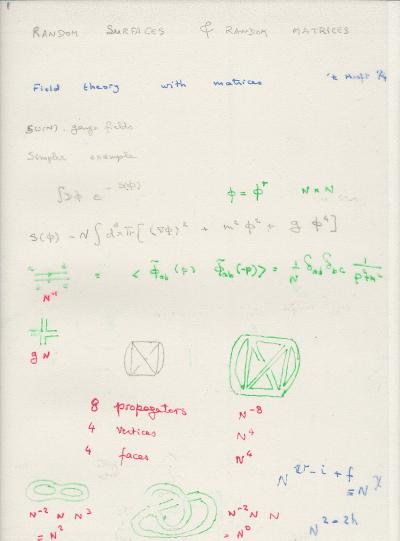 RANDOM SURFACES & RANDOM MATRICES
Field theory with matrices 't Hooft 74
SU(N) gauge fields
Simpler example
∫Dφ e^{-S(φ)} φ = φ† N×N
S(φ) = N ∫ d^d x Tr [ (∇φ)² + m² φ² + g φ⁴ ]
= < φ̃_ab (p) φ̃_ab (-p) > = 1/N δ_ad δ_bc 1/(p²+m²)
N⁻¹
g N
8 propagators N⁻⁸
4 vertices N⁴
4 faces N⁴
N^{v-i+f}
= N^χ
N⁻² N N³
= N²
N⁻² N N
= N⁰
N^{2-2h}